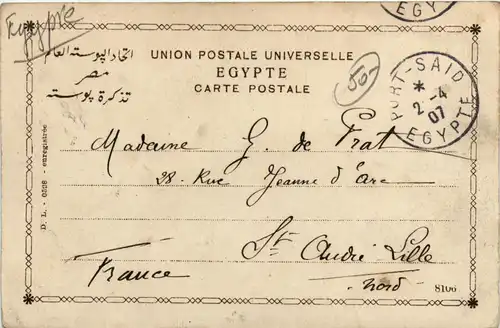 Egypte
EGYP
اتحاد البوستة العام
مصر
تذكرة بوسته
UNION POSTALE UNIVERSELLE
EGYPTE
CARTE POSTALE
50-
PORT-SAID
2-4
07
EGYPTE
Madame G. de Prat
28. Rue Jeanne d'Arc
St. André Lille
Nord
France
D. L. - 0528 - enregistrée
8106